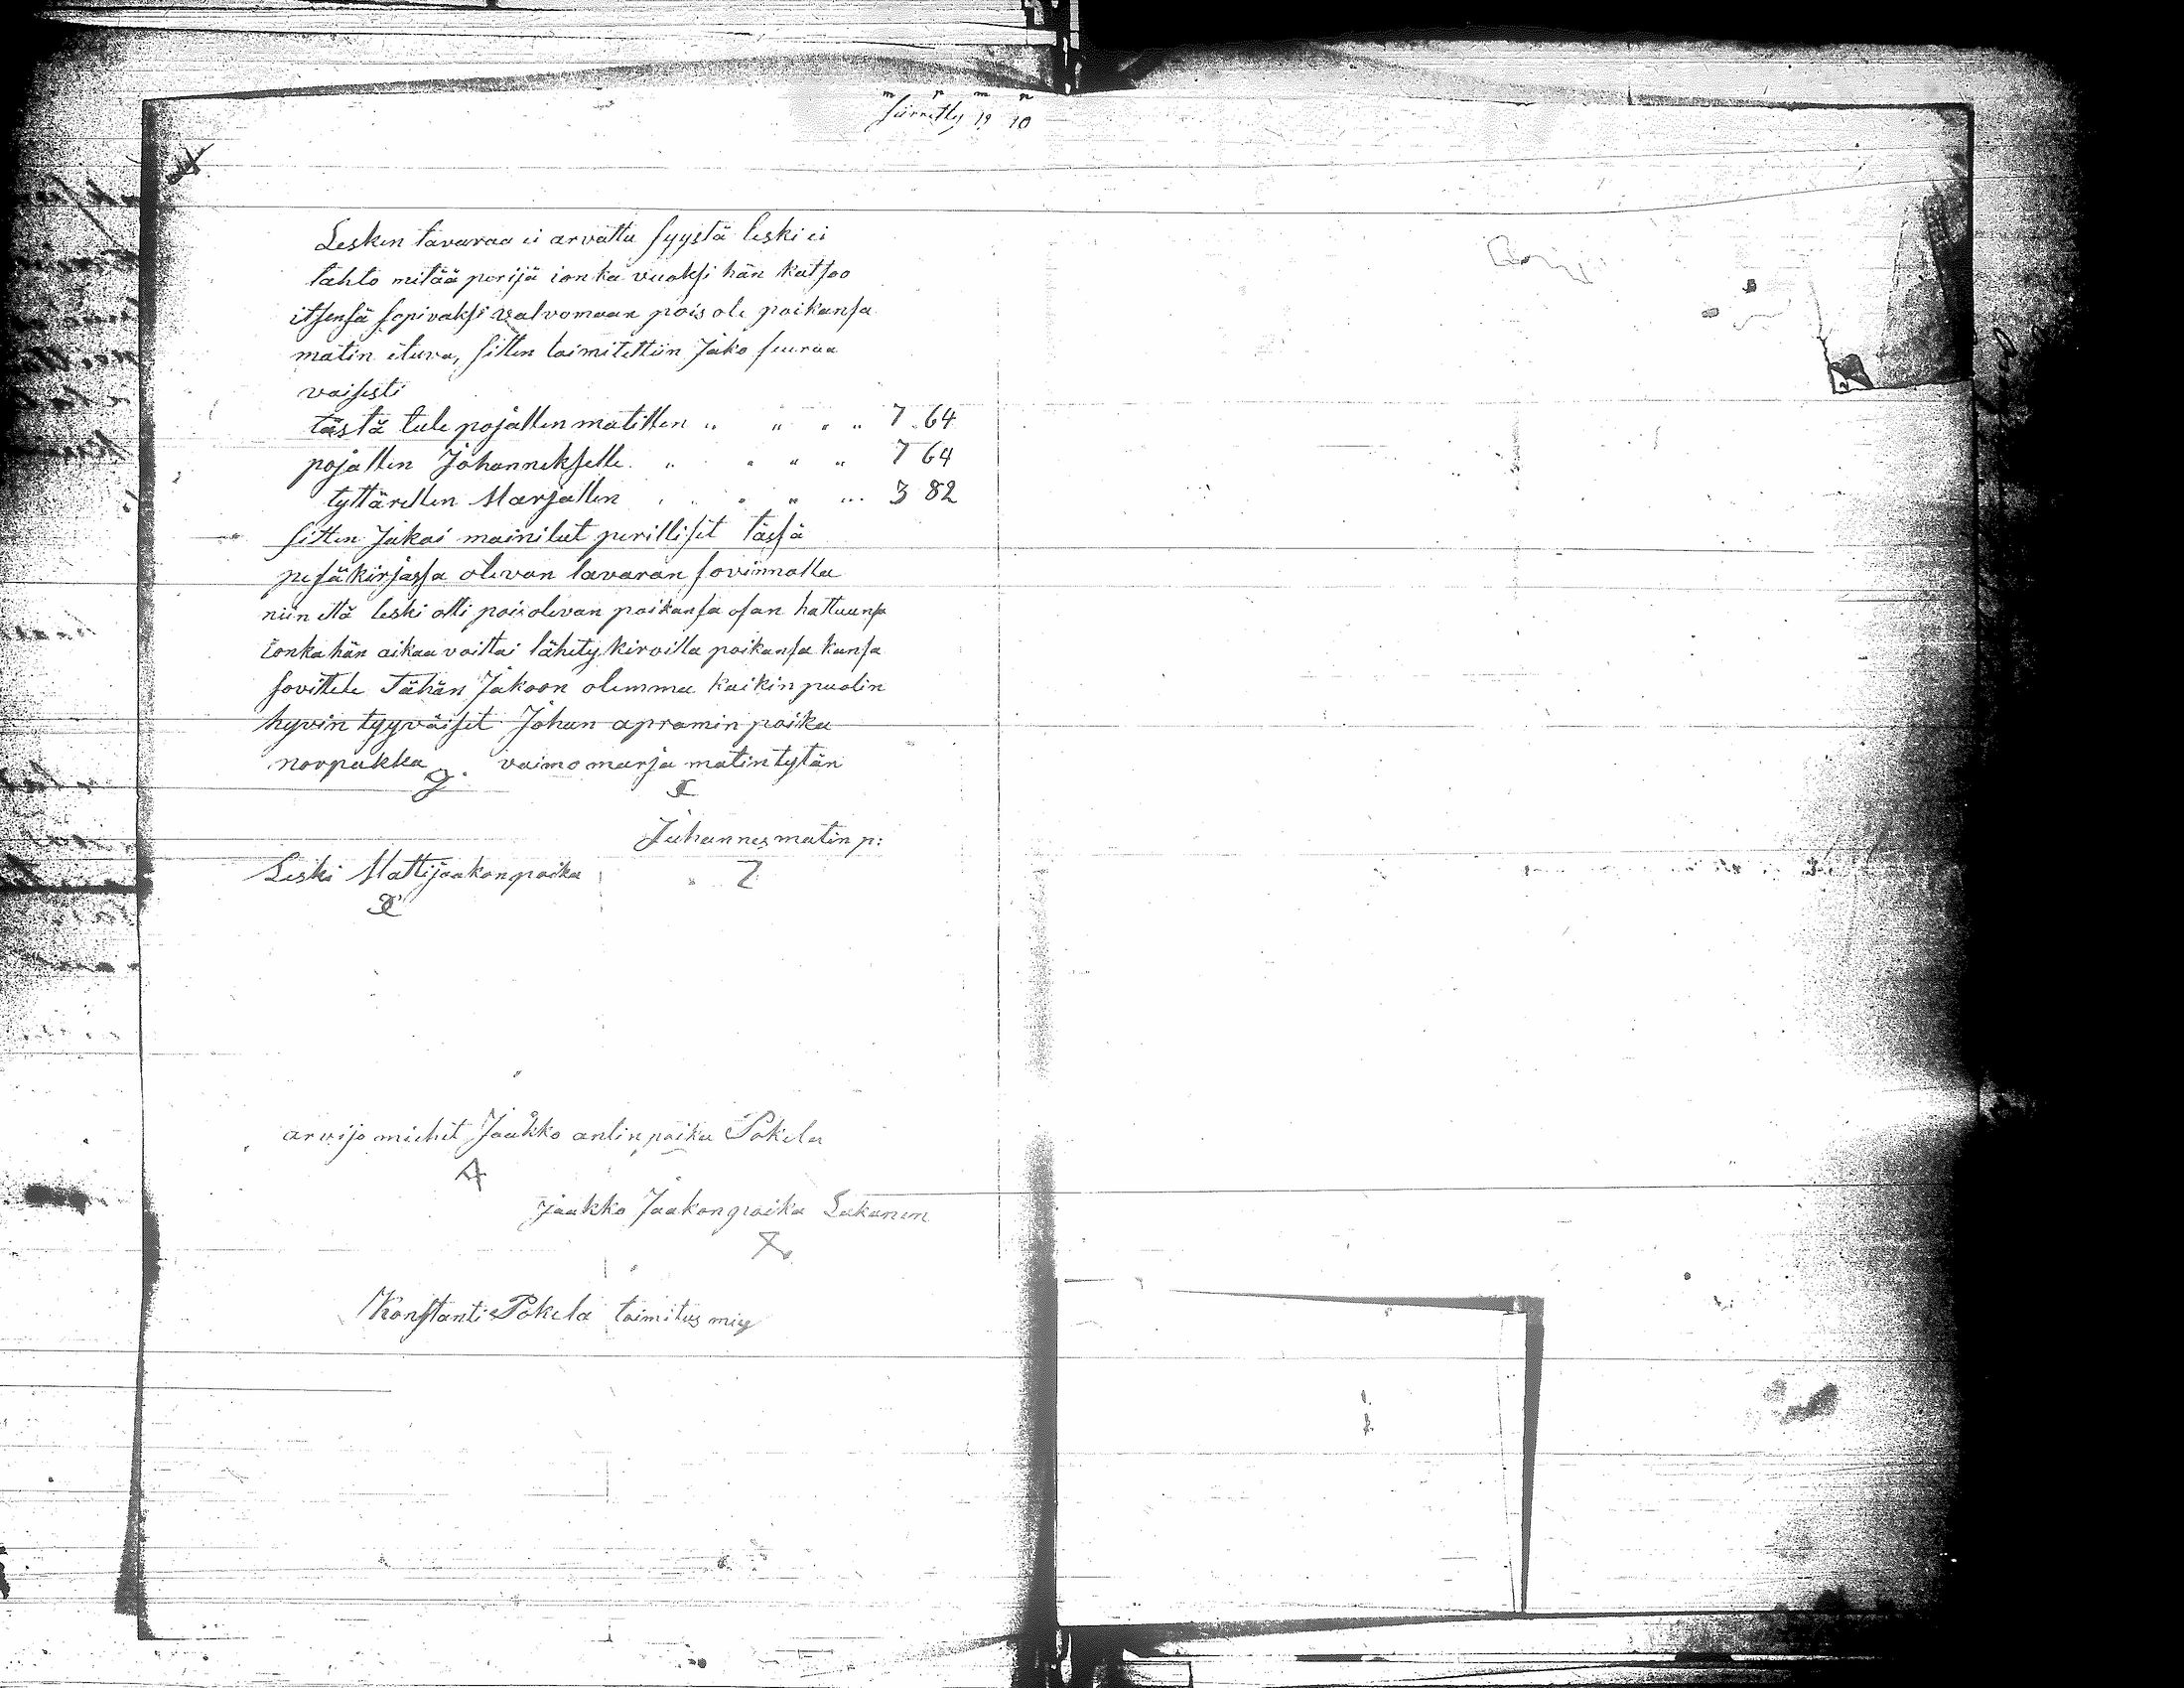 m p m p
siirretty 19 10
Lesken tavaraa ei arvattu syystä leski ei
tahto mitää perijä ionka vuoksi hän katsoo
itsensä sopivaksi valvomaan pois ole poikansa
matin etuva, sitten toimitettiin Jako seuraa
vaisesti
tästä tule pojallen matillen " " " " 7 64
pojallen Johannekselle " " " " 7 64
tyttärellen Marjallen " " " " 3 82
sitten Jakoi mainitut perilliset tässä
pesäkirjassa olevan tavaran sovinnolla
niin että leski otti poisolevan poikansa osan haltuunsa
ionka hän aikaa voittai lähity kirvoilla poikansa kansa
sovittele Tähän Jakoon olemma kaikin puolin
hyvin tyyväiset Johan apramin poika
norpakka vaimo marja matin tytän
Juhannes matin p:
Leski Matti jaakonpoika
arvijo miehet Jaakko antinpoika Pokela
Jaakko Jaakonpoika Lukanen
Konstanti Pokela toimitus mies